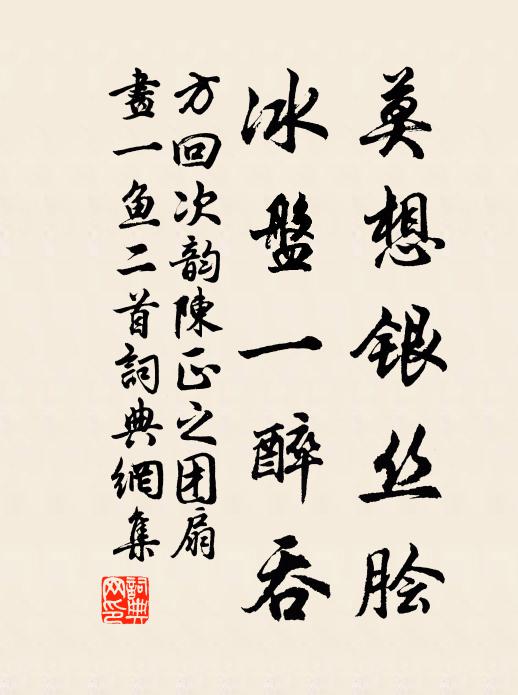 莫想银丝脍
冰盤一醉吞
方回次韵陳正之团扇
畫一鱼二首詞典網集
詞典
网印